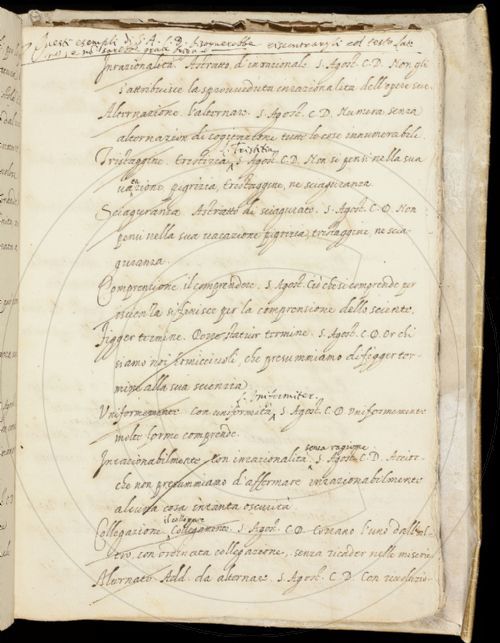 Questi esempli di S. A. C. D. bisognerebbe riscontrargli col testo Lat-
Inrazionalità Astratto d'inrazionale. S. Agost. C. D. Non gli
s'attribuisce la sprovveduta inrazionalità dell'opere sue.
Alternazione. L'alternare. S. Agost. C. D. Numera senza
alternazion di cogitazione tutte le cose innumerabili.
Tristitia
Tristaggine. tristizia S. Agost. C. D. Non si pensi nella sua
vacazione pigrizia, tristaggine, ne sciaguranza.
Sciaguranza Astratto di sciagurato. S. Agost. C. D. Non
pensi nella sua vacazione pigrizia, tristaggine, ne scia-
guranza.
Comprensione. il comprendere. S. Agost. Ciò che si comprende per
scienza si finisce per la comprensione dello sciente.
Figger termine. Porre, statuir termine. S. Agost. C. D. Or chi
siamo noi homicciuoli, che presummiamo di figger ter-
mine alla sua scienzia
Uniformiter.
Uniformemente Con uniformità S. Agost. C. D. Uniformemente
molte forme comprende.
senza ragione
Inrazionabilmente Con inrazionalità S. Agost. C. D. Accioc-
che non presummiamo d'affermare inrazionabilmente
alcuna cosa in tanta oscurità
il collegare
Collegazione. Collegamento. S. Agost. C. D. Corrano l'uno dall'al-
tro, con ordinata collegazione, senza ricader nelle miserie
Alternato Add. da alternare. S. Agost. C. D. Con revoluzio-